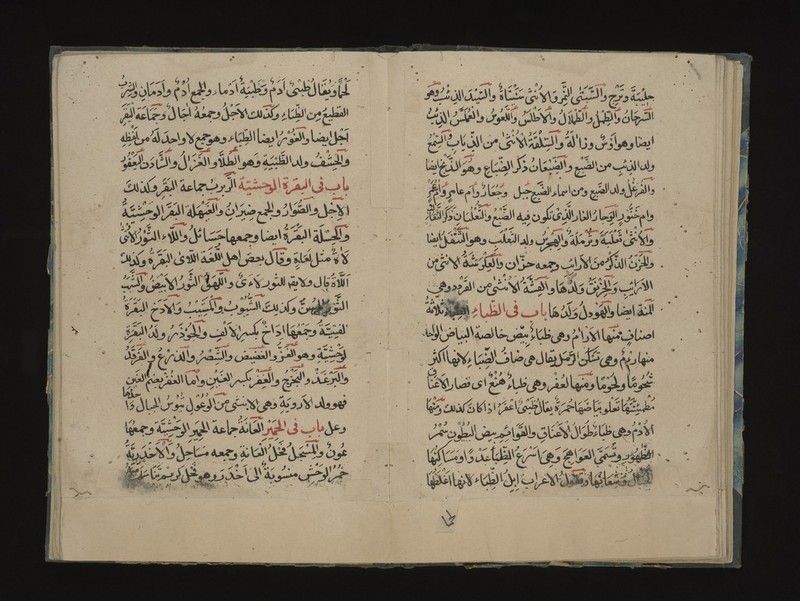 جلبنة وبرج والسبنتى النمر والانثى سبنتاة والسيد الذئب وهو
السرحان والطمل والطلال والاطلس والعوس والعملس الذئب
ايضا وهو اوس وذالة والسلقة الانثى من الذياب والسمع
ولد الذئب من الضبع والضبعان ذكر الضباع وهو الذيخ ايضا
والفرعل ولد الضبع ومن اسماء الضبع جيل وجعار وام عامر وام
وام خنور الوجار الغار الذى تكون فيه الضبع والثعلبان ذكر الثعالب
والانثى ثعلبة وثرملة والهجرس ولد الثعلب وهو التتفل ايضا
والخزز الذكر من الارانب وجمعه خزان والعكرشة الانثى من
الارانب والخرنق ولدها والقشة الانثى من القردة وهى
ايضا والهوذل ولدها باب فى الظباء الظباء ثلاثة
اصناف منها الارام وهى ظباء بيض خالصة البياض الواحد
منها ريم وهى تسكن الرمل يقال هى ضان الظباء لانها اكثر
شحوما ولحوما ومنها العفر وهى ظباء هنع اى قصار الاعناق
تعلو بياضها حمرة يقال ظبى اعفر اذا كان كذلك ومنها
الادم وهى ظباء طوال الاعناق والقوائم بيض البطون سمر
الظهور وتسمى العواهج وهى اسرع الظباء عدوا ومساكنها
الجبال وشعابها وتقول الاعراب ابل الظباء لانها اغلظها
لحما ويقال ظبى ادم وظبية ادماء والجمع ادم وادمان والسرب
القطيع من الظباء وكذلك الاجل وجمعه اجال وجماعة البقر
اجل ايضا والغور ايضا الظباء وهو جمع لا واحد له من لفظه
والخشف ولد الظبية وهو الطلا والغزال والشادن واليعفور
باب فى البقرة الوحشية الربرب جماعة البقر وكذلك
الاجل والصوار والجمع صيران والغيهلة البقر الوحشية
والحسلة البقرة ايضا وجمعها حسائل واللاء الثور والانثى
لاة مثل لعاة وقال بعض اهل اللغة اللاى البقرة وكذلك
اللاة قال ولا يقال للثور لاى واللهق الثور الابيض والشبب
الثور المسن وكذلك الشبوب والمشب والارخ البقرة
الفتية وجمعها اراخ بكسر الالف والجوذر ولد البقرة
الوحشية وهو الفز والغضيض والذرع والفرقد
والبرغز والبحزج والعفر بكسر العين واما الغفر بضم الغين
فهو ولد الاروية وهى الانثى من الوعول تيوس الجبال
وعل باب فى الحمير العانة جماعة الحمير الوحشية وجمعها
عون والمسحل فحل العانة وجمعه مساحل والاخدرية
حمر الوحش منسوبة الى اخدر وهو فحل كريم